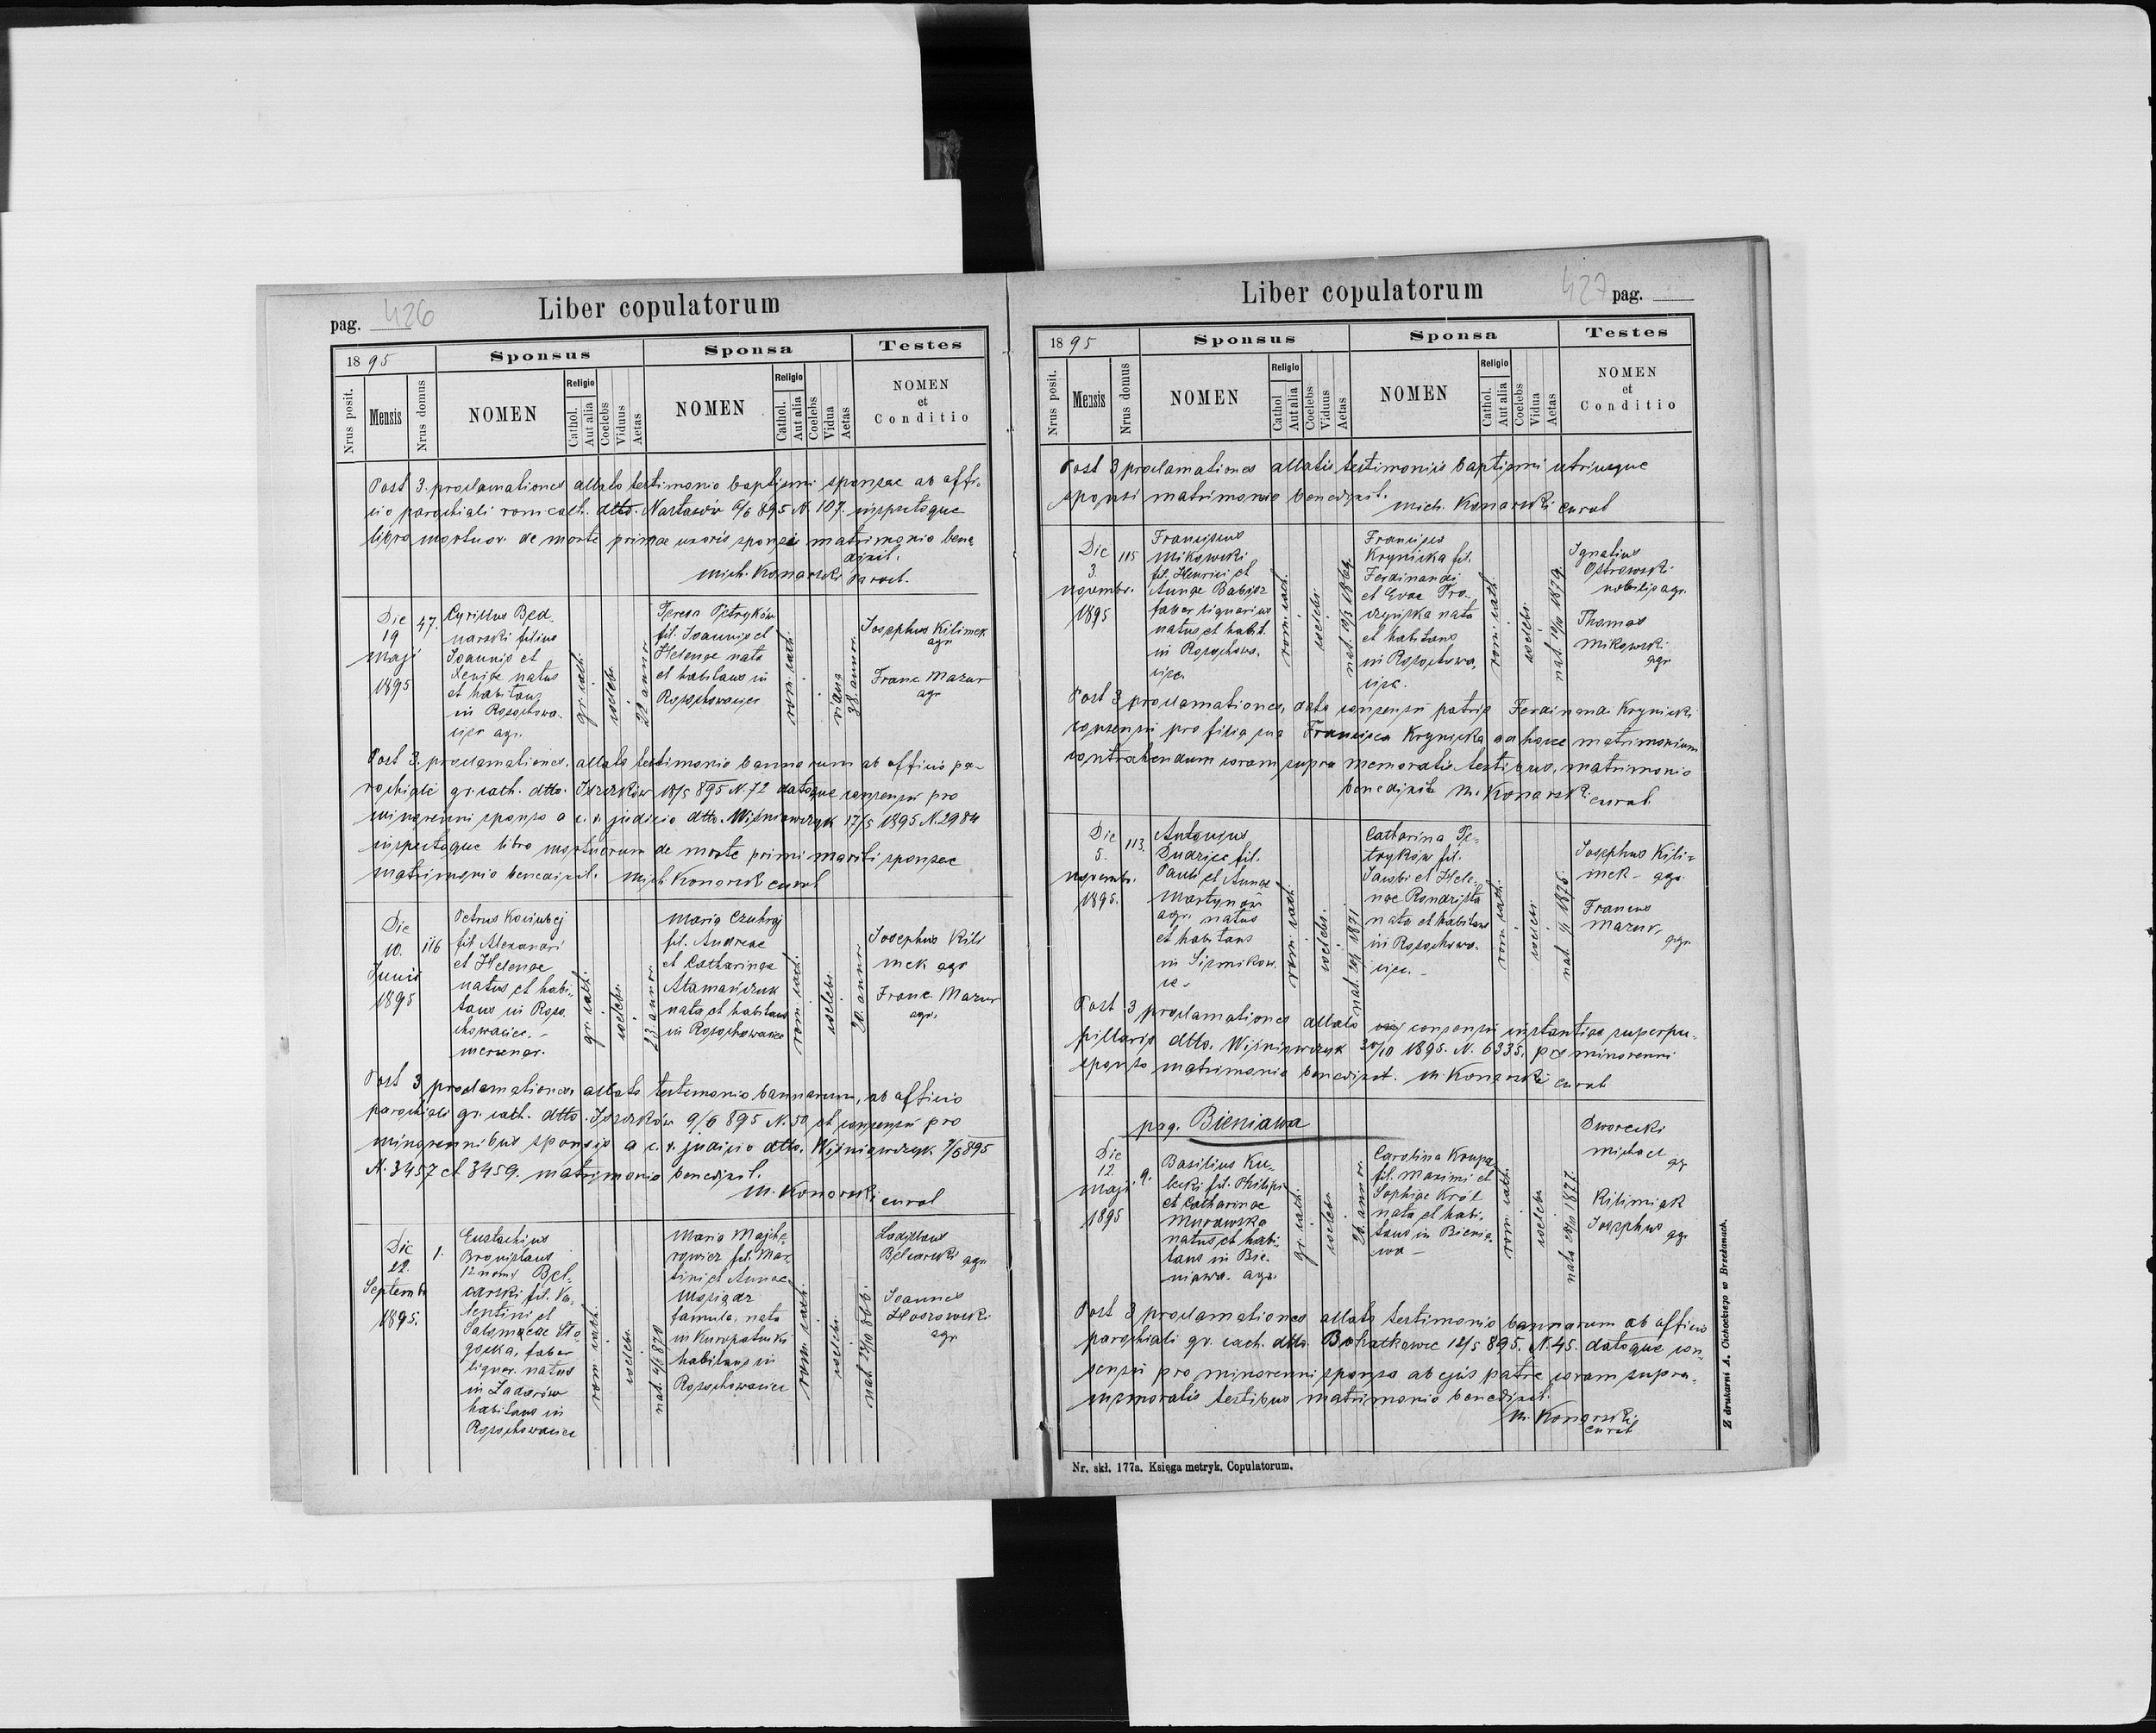 pag. 426
Liber copulatorum
1895
Sponsus
Sponsa
Testes
Nrus posit.
Mensis
Nrus domus
NOMEN
Religio
Cathol.
Aut alia
Coelebs
Viduus
Aetas
NOMEN
Religio
Cathol.
Aut alia
Coelebs
Vidua
Aetas
NOMEN
et
Conditio
Post 3. proclamationes allato testimonio baptismi sponsae ab offi-
cio parochiali rom cath. dtto. Nastasów 6/6 895 N. 107. inspectoque
libro mortuor. de morte primae uxoris sponsi matrimonio bene
dixit.
Mich. Konarski paroch.
Die
19
Maji
1895
47.
Cyrillus Bed-
narski filius
Joannis et
Xeniae natus
et habitans
in Rosochowa-
ciec agr.
gr. cath.
coelebs.
22 annor.
Teresa Petryków
fil. Joannis et
Helenae nata
et habitans in
Rosochowaciec
rom. cath.
vidua
38. annor.
Josephus Kilimek
agr.
Franc Mazur
agr
Post 3. proclamationes. allato testimonio bannorum ab officio pa-
rochiali gr. cath. dtto. 18/5 895 N. 72 datoque consensu pro
minorenni sponso a c. r. judicio dtto. Wiśniowczyk 17/5 1895 N. 2984
inspectoque libro mortuorum de morte primi mariti sponsae
matrimonio benedixit. Mich Konarski curat
Die
10.
Junii
1895
116
Petrus Kociubej
fil Alexandri
et Helenae
natus et habi-
tans in Roso
chowaciec. -
mercenar.
gr. cath.
coelebs.
23 annor.
Maria Czuhraj
fil. Andreae
et Catharinae
Atamańczuk
nata et habitans
in Rosochowaciec
rom. cath.
coelebs.
20. annor.
Josephus Kili
mek agr
Franc. Mazur
agr.
Post 3 proclamationes allato testimonio bannorum, ab officio
parochiali gr. cath. dtto. 9/6 895 N. 50 et consensu pro
minorennibus sponsis a c. r. judicio dtto. Wiśniowczyk 7/6 895
N. 3457 et 3459. matrimonio benedixit.
M. Konarski curat
Die
22.
Septemb
1895.
1.
Eustachius
Bronislaus
12 nomi Bel-
carski fil. Va-
lentini et
Salomeae
faber
lignar. natus
in Zadarów
habitans in
Rosochowaciec
rom. cath.
coelebs.
nat. 4/9 870
Maria Majche-
rowicz fil. Mar-
tini et Annae
famula, nata
in Kuropatniki
habitans in
Rosochowaciec
rom. cath.
coelebs.
nat 23/10 866.
Ladislaus
Belcarski agr
Joannes
agr.
427 pag.
Liber copulatorum
1895
Sponsus
Sponsa
Testes
Nrus posit.
Mensis
Nrus domus
NOMEN
Religio
Cathol
Aut alia
Coelebs
Viduus
Aetas
NOMEN
Religio
Cathol.
Aut alia
Coelebs
Vidua
Aetas
NOMEN
et
Conditio
Post 3 proclamationes allatis testimoniis baptismi utriusque
sponsi matrimonio benedixit.
Mich. Konarski curat
Die
3.
novembr.
1895
115
Franciscus
Mikowski
fil. Henrici et
Annae Babisz
faber lignarius
natus et habit.
in Rosochowa-
ciec
rom. cath.
coelebs.
nat. 10/3 1869.
Francisca
Krynicka fil.
Ferdinandi
et Evae
nata
et habitans
in Rosochowa-
ciec.
rom. cath.
coelebs.
nat 19/10 1879.
Ignatius
Ostrowski
nobilis agr.
Thomas
Mikowski
agr
Post 3 proclamationes, dato consensu patris Ferdinandi Krynicki
consensu pro filia sua Francisca Krynicka ad hocce matrimonium
contrahendum coram supra memoratis testibus, matrimonio
benedixit M. Konarski curat.
Die
5.
novembr.
1895.
113.
Antonius
Dudziec fil.
Pauli et Annae
Martynów
agr. natus
et habitans
in Siemikow-
ce -
rom. cath.
coelebs.
nat. 20/1 1871
Catharina Pe-
tryków fil.
Jacobi et Hele-
nae Kondrista
nata et habitans
in Rosochowa-
ciec. -
rom. cath.
coelebs.
nat 1875.
Josephus Kili-
mek - agr.
Francus
Mazur,
agr.
Post 3 proclamationes allato consensu instantiae superpu-
pillaris dtto. Wiśniowczyk 30/10 1895. N. 6335. pro minorenni
sponso matrimonio benedixit. M. Konarski curat
pag. Bieniawa
Die
12.
Maji
1895
9.
Basilius Ku-
lecki fil. Philipi
et Catharinae
Murawska
natus et habi-
tans in Bie-
niawa. agr.
gr. cath.
coelebs.
26. annor.
Carolina Krupa
fil. Maximi et
Sophiae Król
nata et habi-
tans in Bienia-
wa -
rom. cath.
coelebs.
nata 28/10 1877.
Dworecki
Michael
agr
Kilimiak
Josephus agr
Post 3 proclamationes allato testimonio bannorum ab officio
parochiali gr. cath. dtto. Bohatkowce 12/5 895. N. 45. datoque con-
sensu pro minorenni sponsa ab ejus patre coram supra-
memoratis testibus matrimonio benedixit.
M. Konarski
curat
Nr. skł. 177a. Księga metryk, Copulatorum.
Z drukarni A. Cichockiego w Brzeżanach.